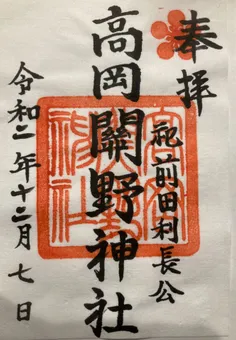 奉拝
祀前田利長公
高岡關野神社
令和二年十二月七日